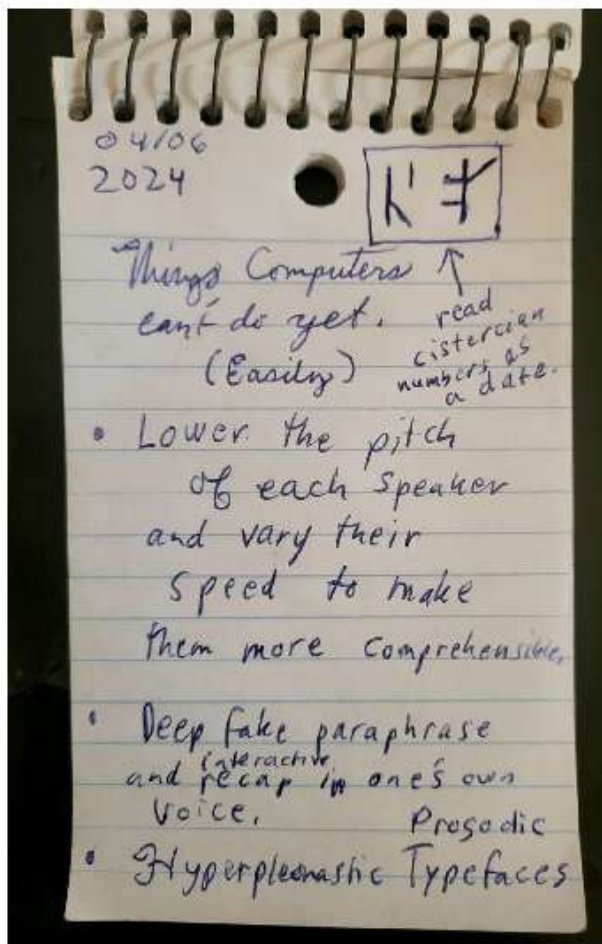 04/06
2024
Things Computers
can't do yet.
(Easily)
read
cistercian
numbers as
a date.
• Lower the pitch
of each speaker
and vary their
speed to make
them more comprehensible.
• Deep fake paraphrase
interactive
and recap in one's own
voice.
Prosodic
• Hyperpleonastic Typefaces